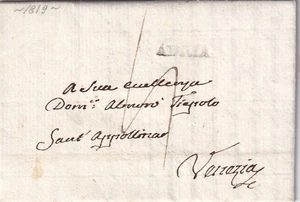 ~1819~
ADRIA
A Sua Eccellenza
Dom:º Almorò Tiepolo
Sant' Appollinar
Venezia